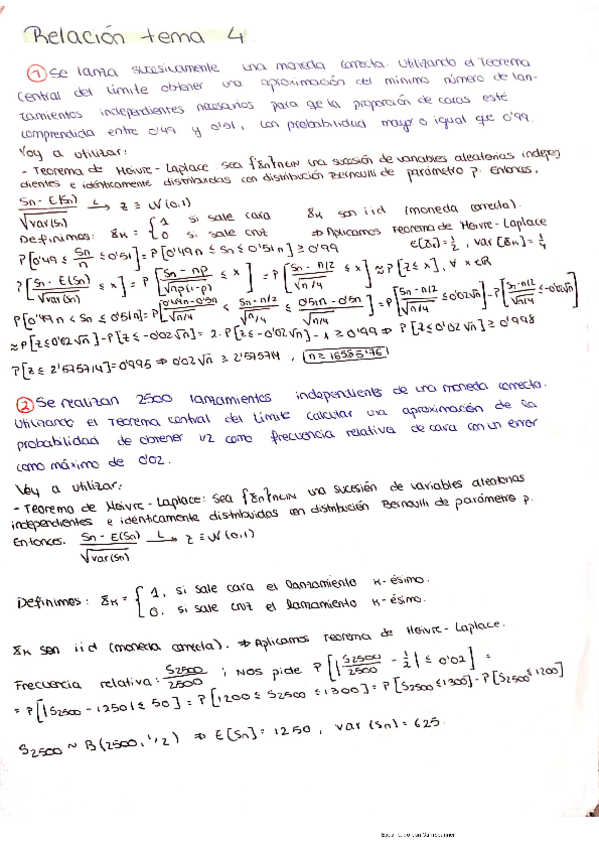 Relación tema 4
① Se lanza sucesivamente una moneda correcta. Utilizando el Teorema
Central del Límite obtener una aproximación del mínimo número de lan-
zamientos independientes necesarios para que la proporción de caras esté
comprendida entre 0'49 y 0'51, con probabilidad mayor o igual que 0'99.
Voy a utilizar:
- Teorema de Moivre-Laplace: Sea {ξn}n∈ℕ una sucesión de variables aleatorias indepen
dientes e idénticamente distribuidas con distribución Bernoulli de parámetro p. Entonces,
(Sn - E(Sn))/√var(Sn) →L Z ≡ N(0,1)
Definimos: ξk = { 1 si sale cara / 0 si sale cruz ξk son iid (moneda correcta). ⇒ Aplicamos Teorema de Moivre-Laplace
E(ξk) = 1/2, var(ξk) = 1/4
P[0'49 ≤ Sn/n ≤ 0'51] = P[0'49n ≤ Sn ≤ 0'51n] ≥ 0'99
P[(Sn - E(Sn))/√var(Sn) ≤ x] = P[(Sn - np)/√(np(1-p)) ≤ x] = P[(Sn - n/2)/√(n/4) ≤ x] ≈ P[Z ≤ x], ∀ x∈ℝ
P[0'49n < Sn ≤ 0'51n] = P[(0'49n - 0'5n)/√(n/4) < (Sn - n/2)/√(n/4) ≤ (0'51n - 0'5n)/√(n/4)] = P[(Sn - n/2)/√(n/4) ≤ 0'02√n] - P[(Sn - n/2)/√(n/4) ≤ -0'02√n]
≈ P[Z ≤ 0'02√n] - P[Z ≤ -0'02√n] = 2·P[Z ≤ 0'02√n] - 1 ≥ 0'99 ⇒ P[Z ≤ 0'02√n] ≥ 0'995
P[Z ≤ 2'575714] = 0'995 ⇒ 0'02√n ≥ 2'575714,
② Se realizan 2500 lanzamientos independientes de una moneda correcta.
Utilizando el Teorema central del Límite calcular una aproximación de la
probabilidad de obtener 1/2 como frecuencia relativa de cara con un error
como máximo de 0'02.
Voy a utilizar:
- Teorema de Moivre-Laplace: Sea {ξn}n∈ℕ una sucesión de variables aleatorias
independientes e idénticamente distribuidas con distribución Bernoulli de parámetro p.
Entonces. (Sn - E(Sn))/√var(Sn) →L Z ≡ N(0,1)
Definimos: ξk = { 1, si sale cara el lanzamiento k-ésimo. / 0, si sale cruz el lanzamiento k-ésimo.
ξk son iid (moneda correcta). ⇒ Aplicamos Teorema de Moivre-Laplace.
Frecuencia relativa: S2500/2500 ; Nos pide P[|S2500/2500 - 1/2| ≤ 0'02] =
= P[|S2500 - 1250| ≤ 50] = P[1200 ≤ S2500 ≤ 1300] = P[S2500 ≤ 1300] - P[S2500 ≤ 1200]
S2500 ~ B(2500, 1/2) ⇒ E[Sn] = 1250, var(Sn) = 625.